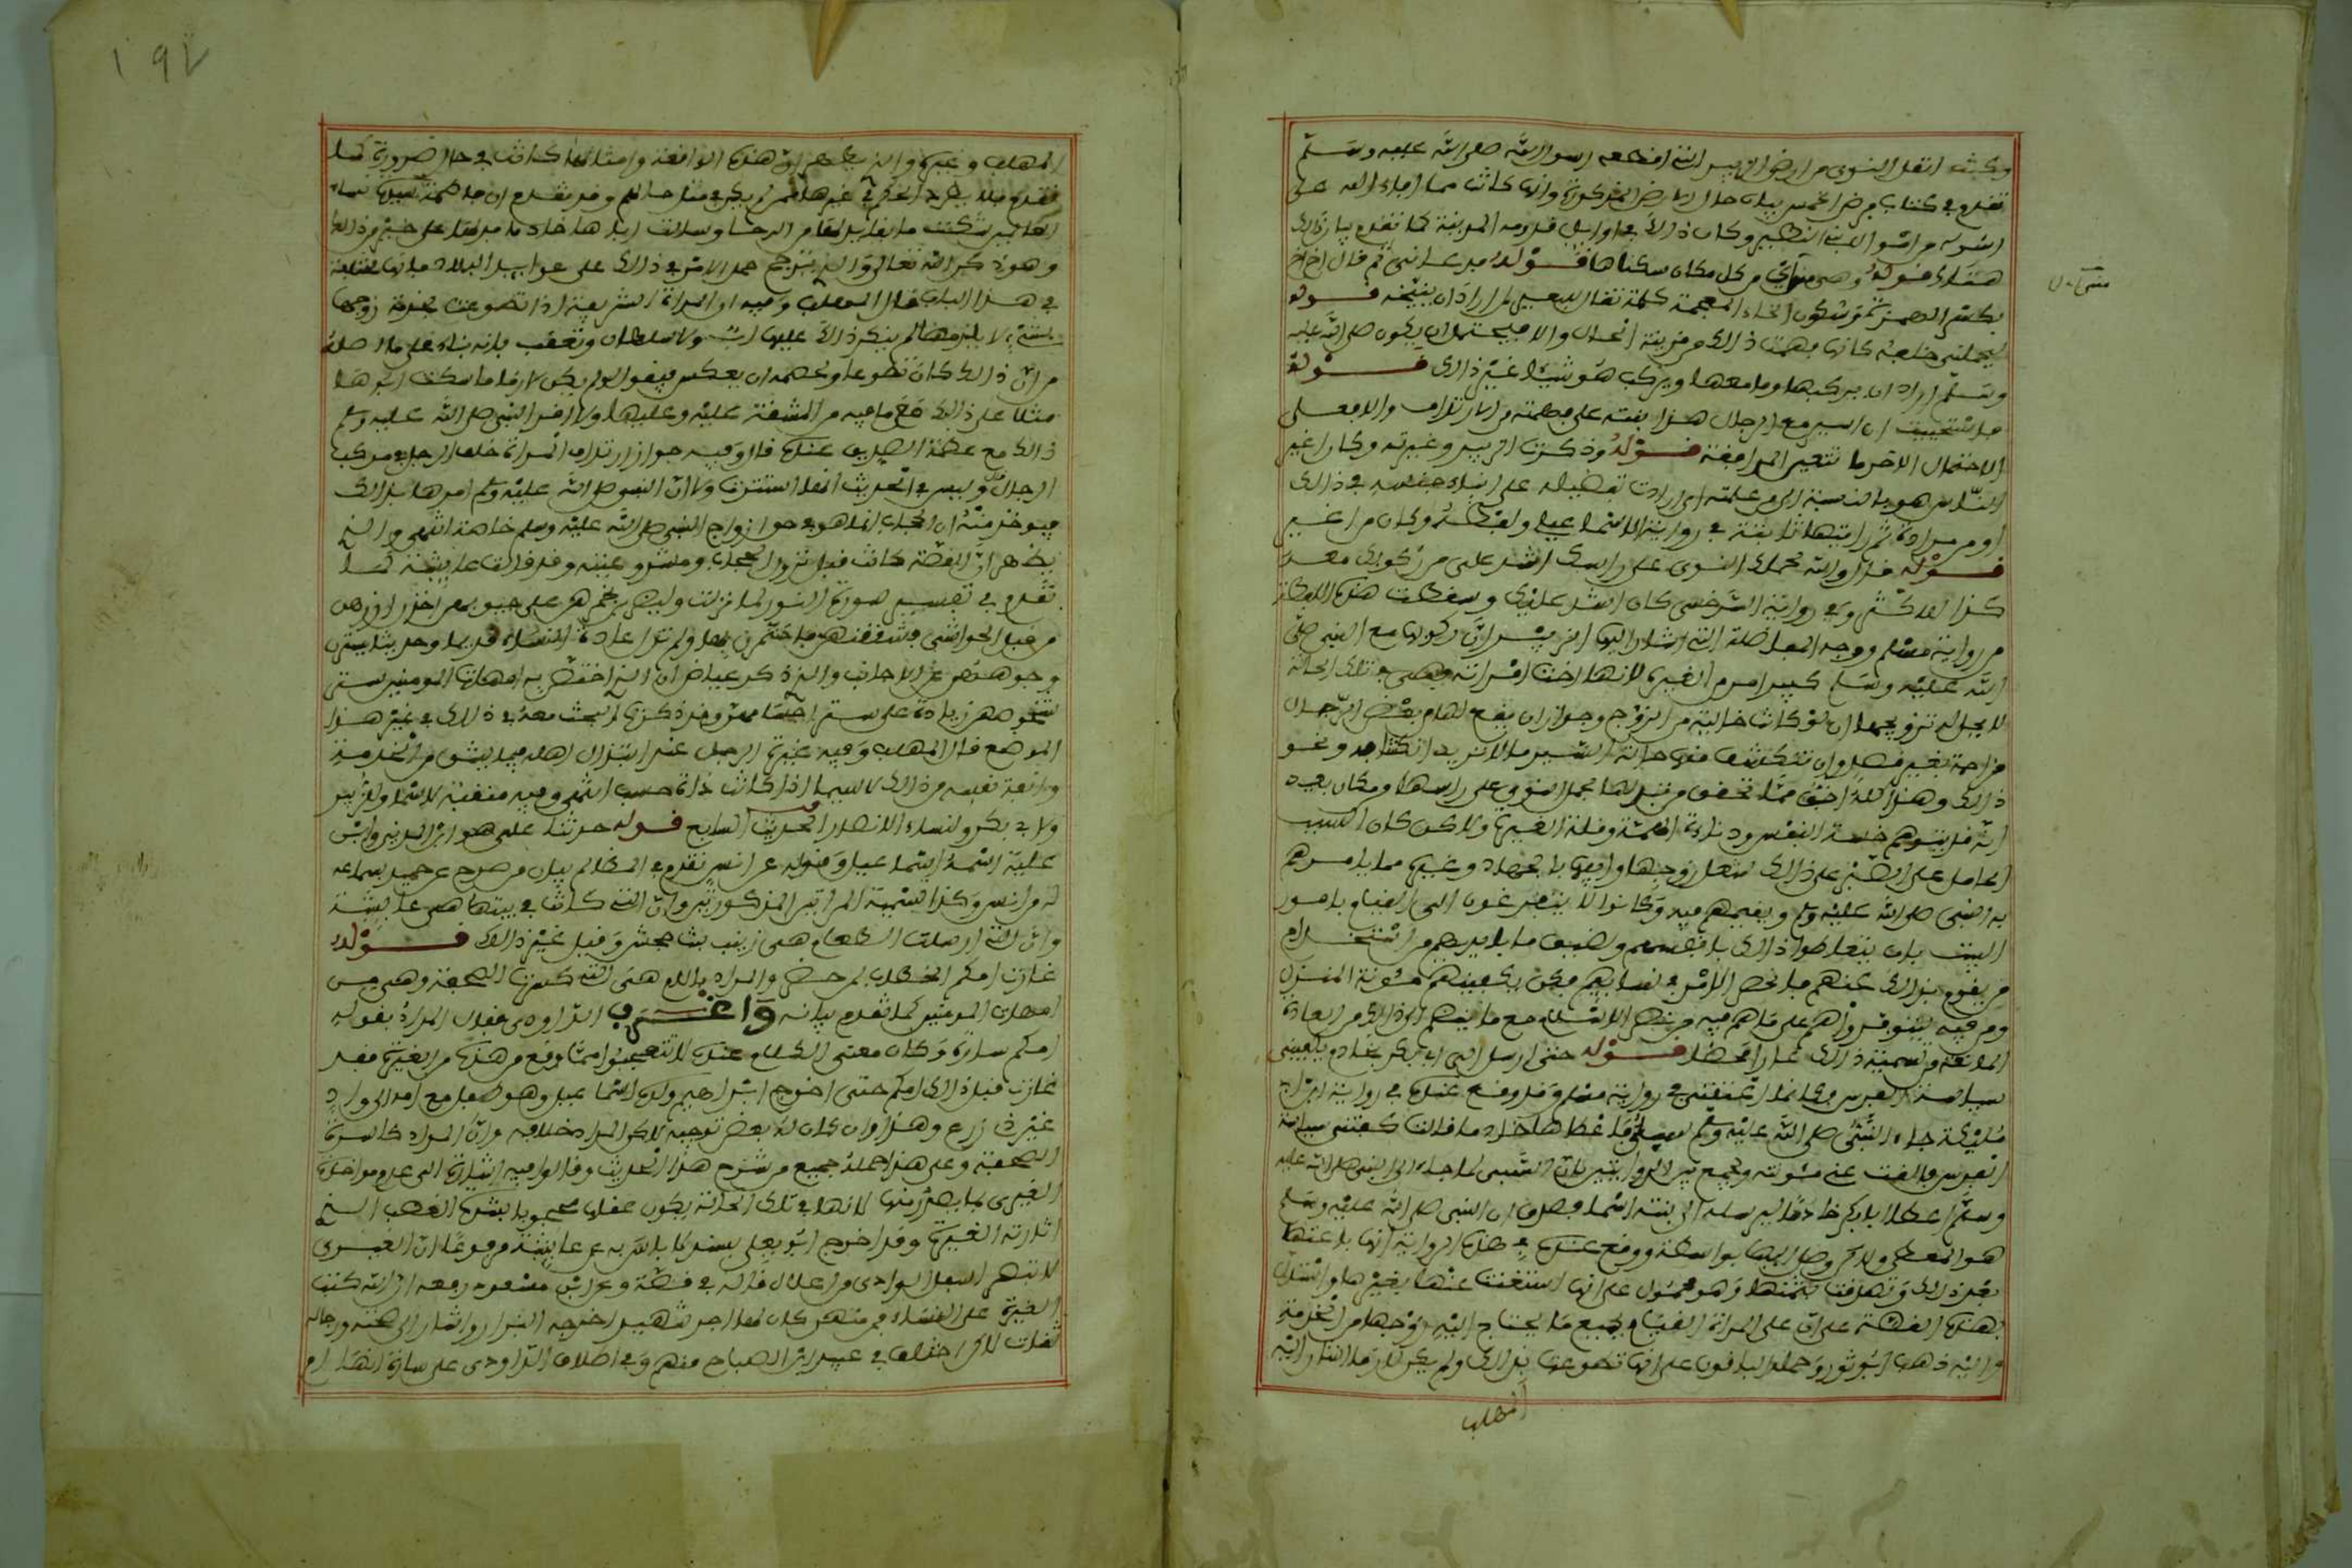 وكنت انقل النوى من ارض الزبير التي اقطعه رسول الله صلى الله عليه وسلم
تقدم في كتاب فرض الخمس بيان حال الارض المذكورة وانها كانت مما افاء الله على
رسوله من اموال بني النضير وكان ذلك في اوايل قدومه المدينة كما تقدم بيان ذلك
هناك قوله وهي مني اي من مكان سكناها قوله فدعاني ثم قال اخ اخ
بكسر الهمزة وسكون الخاء المعجمة كلمة تقال للبعير لمن اراد ان ينيخه قوله
ليحملني خلفه كانها فهمت ذلك من قرينة الحال والا فيحتمل ان يكون صلى الله عليه
وسلم اراد ان يركبها وما معها ويركب هو شيئا غير ذلك قوله
فاستحييت ان اسير مع الرجال هذا بنته على فهمته من الارتداف والا فعلى
الاحتمال الاخر ما تتعين المرافقة قوله وذكرت الزبير وغيرته وكان اغير
الناس هو بالنسبة الى من علمته اي ارادت تفضيله على ابناء جنسه في ذلك
او من مرادة ثم رايتها ثابتة في رواية الاسماعيلي ولفظه وكان من اغير
قوله فقال والله لحملك النوى على راسك اشد علي من ركوبك معه
كذا للاكثر وفي رواية السرخسي كان اشد عليك وسقطت هذه اللفظة
من رواية مسلم ووجه المفاضلة التي اشار اليها الزبير ان ركوبها مع النبي صلى
الله عليه وسلم كبير امر من الغيرة لانها اخت امراته فهي في تلك الحالة
لا يحل له تزويجها ان لو كانت خالية من الزوج وجواز ان يقع لها من بعض الرجال
مزاحمة بغير قصد وان تنكشف منها حالة السير ما لا تريد انكشافه ونحو
ذلك وهذا كله اخف مما تحقق من تبذلها بحمل النوى على راسها من مكان بعيد
انه قد يتوهم خسة النفس ودناءة الهمة وقلة الغيرة ولاكن كان السبب
الحامل على الصبر على ذلك شغل زوجها وابيها بالجهاد وغيره مما يامرهم
به النبي صلى الله عليه وسلم ويقيمهم فيه وكانوا لا يتفرغون الى القيام بامور
البيت بان يتعاطوا ذلك بانفسهم ولضيق ما بايديهم من استخدام
من يقوم بذلك عنهم فانحصر الامر في نسايهم فكن يكفينهم مئونة المنزل
ومن فيه ليتوفروا هم على ما هم فيه من نصر الاسلام مع ما ينضم الى ذلك من العادة
المانعة من تسمية ذلك عارا محضا قوله حتى ارسل الي ابو بكر بخادم يكفيني
سياسة الفرس فكانما اعتقني في رواية مسلم وقد وقع عنده في رواية ابن ابي
مليكة جاء النبي صلى الله عليه وسلم سبي فاعطاها خادما قالت كفتني سياسة
الفرس فالقت عني مئونته ويجمع بين الروايتين بان السبي لما جاء الى النبي صلى الله عليه
وسلم اعطى ابا بكر خادما ليرسله الى ابنته اسماء فصدق ان النبي صلى الله عليه وسلم
هو المعطي ولاكن وصل اليها بواسطة ووقع عنده في هذه الرواية انها باعتها
بعد ذلك وتصدقت بثمنها وهو محمول على انها استغنت عنها بغيرها واستدل
بهذه القصة على ان على المراة القيام بجميع ما يحتاج اليه زوجها من الخدمة
واليه ذهب ابو ثور وحمله الباقون على انها تطوعت بذلك ولم يكن لازما اشار اليه
المهلب
١٩٧
المهلب وغيره والذي يظهر ان هذه الواقعة وامثالها كانت في حال ضرورة كما
تقدم فلا يطرد الحكم في غيرها ممن لم يكن في مثل حالهم وقد تقدم ان فاطمة سيدة نساء
العالمين شكت ما تلقى يداها من الرحا وسالت اباها خادما فدلها على خير من ذلك
وهو ذكر الله تعالى والذي يترجح حمل الامر في ذلك على عوايد البلاد فانها مختلفة
في هذا الباب قال المهلب وفيه ان المراة الشريفة اذا تطوعت بخدمة زوجها
بشيء لا يلزمها لم ينكر ذلك عليها اب ولا سلطان وتعقب بانه بناء على ما اصله
من ان ذلك كان تطوعا ولخصمه ان يعكس فيقول لو لم يكن لازما ما سكت ابوها
مثلا على ذلك مع ما فيه من المشقة عليه وعليها ولا اقر النبي صلى الله عليه وسلم
ذلك مع عظمة الصديق عنده قال وفيه جواز ارتداف المراة خلف الرجل في موكب
الرجال وليس في الحديث انها استترت ولا ان النبي صلى الله عليه وسلم امرها بذلك
فيوخذ منه ان الحجاب انما هو في حق ازواج النبي صلى الله عليه وسلم خاصة انتهى والذي
يظهر ان القصة كانت قبل نزول الحجاب ومشروعيته وقد قالت عايشة كما
تقدم في تفسير سورة النور لما نزلت وليضربن بخمرهن على جيوبهن اخذن ازرهن
من قبل الحواشي فشققنهن فاختمرن بها ولم تزل عادة النساء قديما وحديثا يسترن
وجوههن عن الاجانب والذي ذكر عياض ان الذي اختص به امهات المومنين ستر
شخوصهن زيادة على ستر اجسامهن وقد ذكرت البحث معه في ذلك في غير هذا
الموضع قال المهلب وفيه غيرة الرجل عند ابتذال اهله فيما يشق من الخدمة
وانفة نفسه من ذلك لا سيما اذا كانت ذات حسب انتهى وفيه منقبة لاسماء وللزبير
ولابي بكر ولنساء الانصار الحديث السابع قوله حدثنا علي هو ابن المديني وابن
علية اسمه اسماعيل وقوله عن انس تقدم في المظالم بيان من صرح عن حميد بسماعه
له من انس وكذا تسمية المراتين المذكورتين وان التي كانت في بيتها هي عايشة
وان التي ارسلت الطعام هي زينب بنت جحش وقيل غير ذلك قوله
غارت امكم الخطاب لمن حضر والمراد بالام هي التي كسرت الصحفة وهي من
امهات المومنين كما تقدم بيانه واغرب الداودي فقال المراد بقوله
امكم سارة وكان معنى الكلام عنده لا تتعجبوا مما وقع من هذه من الغيرة فقد
غارت قبل ذلك امكم حتى اخرج ابراهيم ولده اسماعيل وهو طفل مع امه الى واد
غير ذي زرع وهذا وان كان له بعض توجيه لاكن المراد خلافه وان المراد كاسرة
الصحفة وعلى هذا حمله جميع من شرح هذا الحديث وقالوا فيه اشارة الى عدم مواخذة
الغيرى بما يصدر منها لانها في تلك الحالة يكون عقلها محجوبا بشدة الغضب الذي
اثارته الغيرة وقد اخرج ابو يعلى بسند لا باس به عن عايشة مرفوعا ان الغيرى
لا تبصر اسفل الوادي من اعلاه قاله في قصة وعن ابن مسعود رفعه ان الله كتب
الغيرة على النساء فمن صبر كان لها اجر شهيد اخرجه البزار واشار الى صحته ورجاله
ثقات لاكن اختلف في عبيد ابن الصباح منهم وفي اطلاق الداودي على سارة انها ام